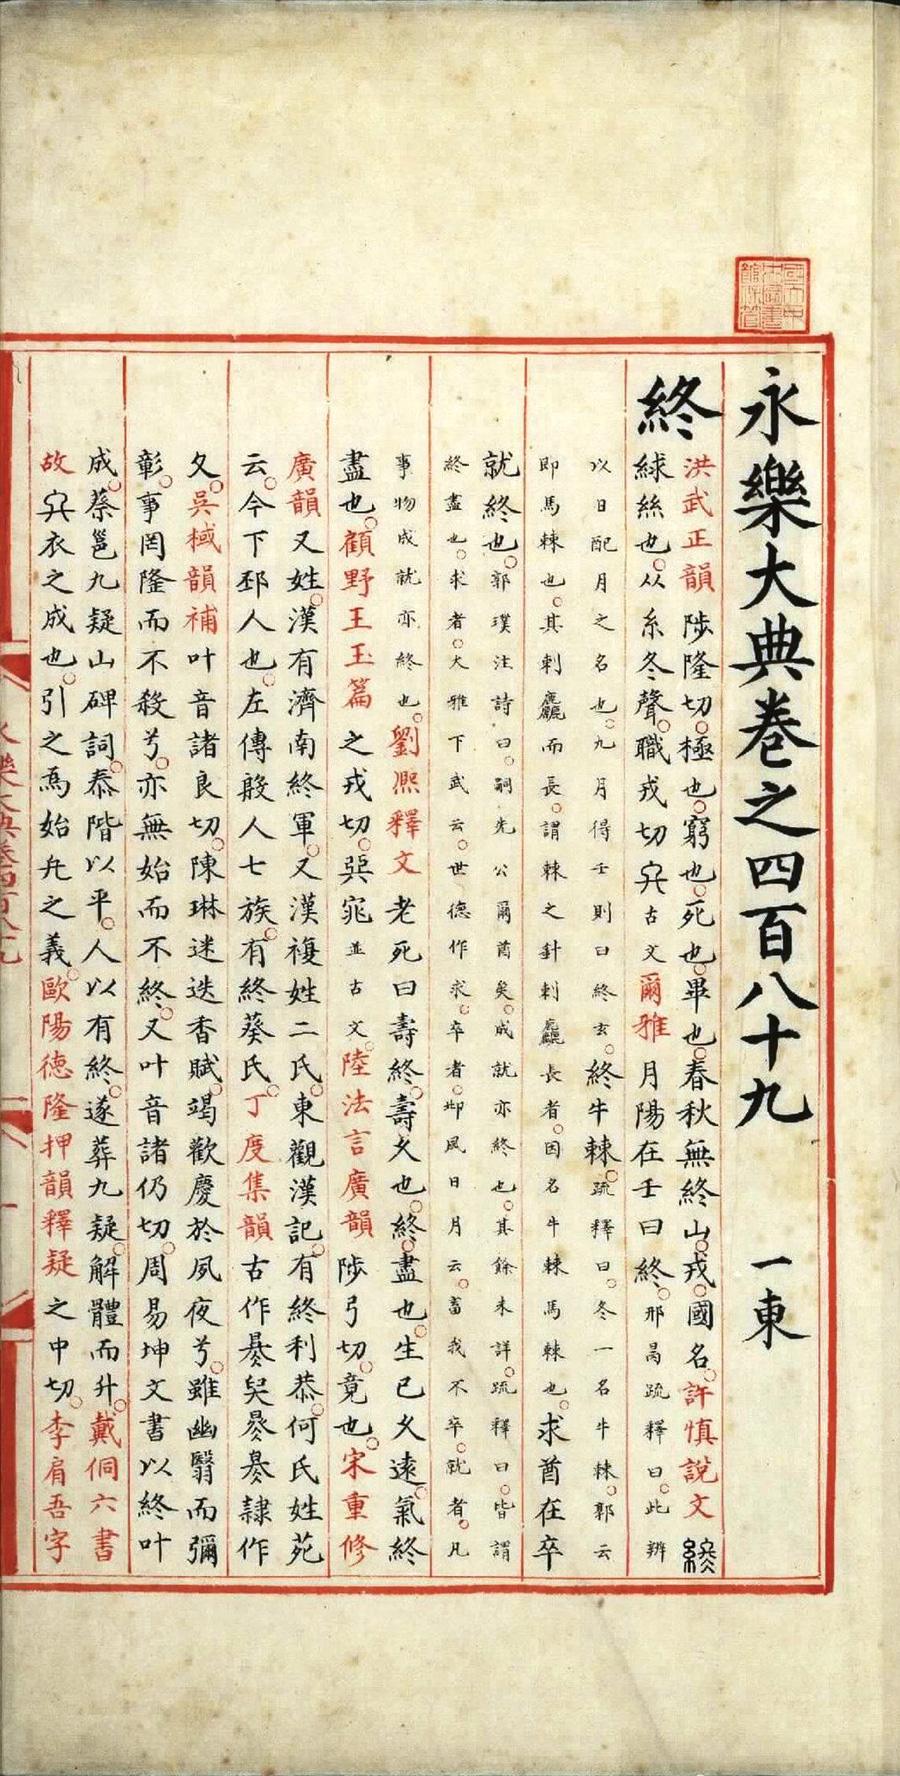 永樂大典卷之四百八十九 一東
終
洪武正韻陟隆切極也窮也死也畢也春秋無終山戎國名許慎說文
綠絲也从糸冬聲職戎切古文爾雅月陽在壬曰終邢昺疏釋曰此辨
以日配月之名也九月得壬則曰終玄終牛棘疏釋曰冬一名牛棘郭云
即馬棘也其刺麤而長謂棘之針刺麤長者因名牛棘馬棘也求酋在卒
就終也郭璞注詩曰嗣先公爾酋矣成就亦終也其餘未詳疏釋曰皆謂
終盡也求者大雅下武云世德作求卒者邶風日月云畜我不卒就者凡
事物成就亦終也劉熙釋文老死曰壽終壽久也終盡也生已久遠氣終
盡也顧野王玉篇之戎切並古文陸法言廣韻陟弓切竟也宋重修
廣韻又姓漢有濟南終軍又漢複姓二氏東觀漢記有終利恭何氏姓苑
云今下邳人也左傳殷人七族有終葵氏丁度集韻古作隷作
夂吳棫韻補叶音諸良切陳琳迷迭香賦竭歡慶於夙夜兮雖幽翳而彌
彰事罔隆而不殺兮亦無始而不終又叶音諸仍切周易坤文書以終叶
成蔡邕九疑山碑詞泰階以平人以有終遂葬九疑解體而升戴侗六書
故衣之成也引之焉始之義歐陽德隆押韻釋疑之中切李肩吾字